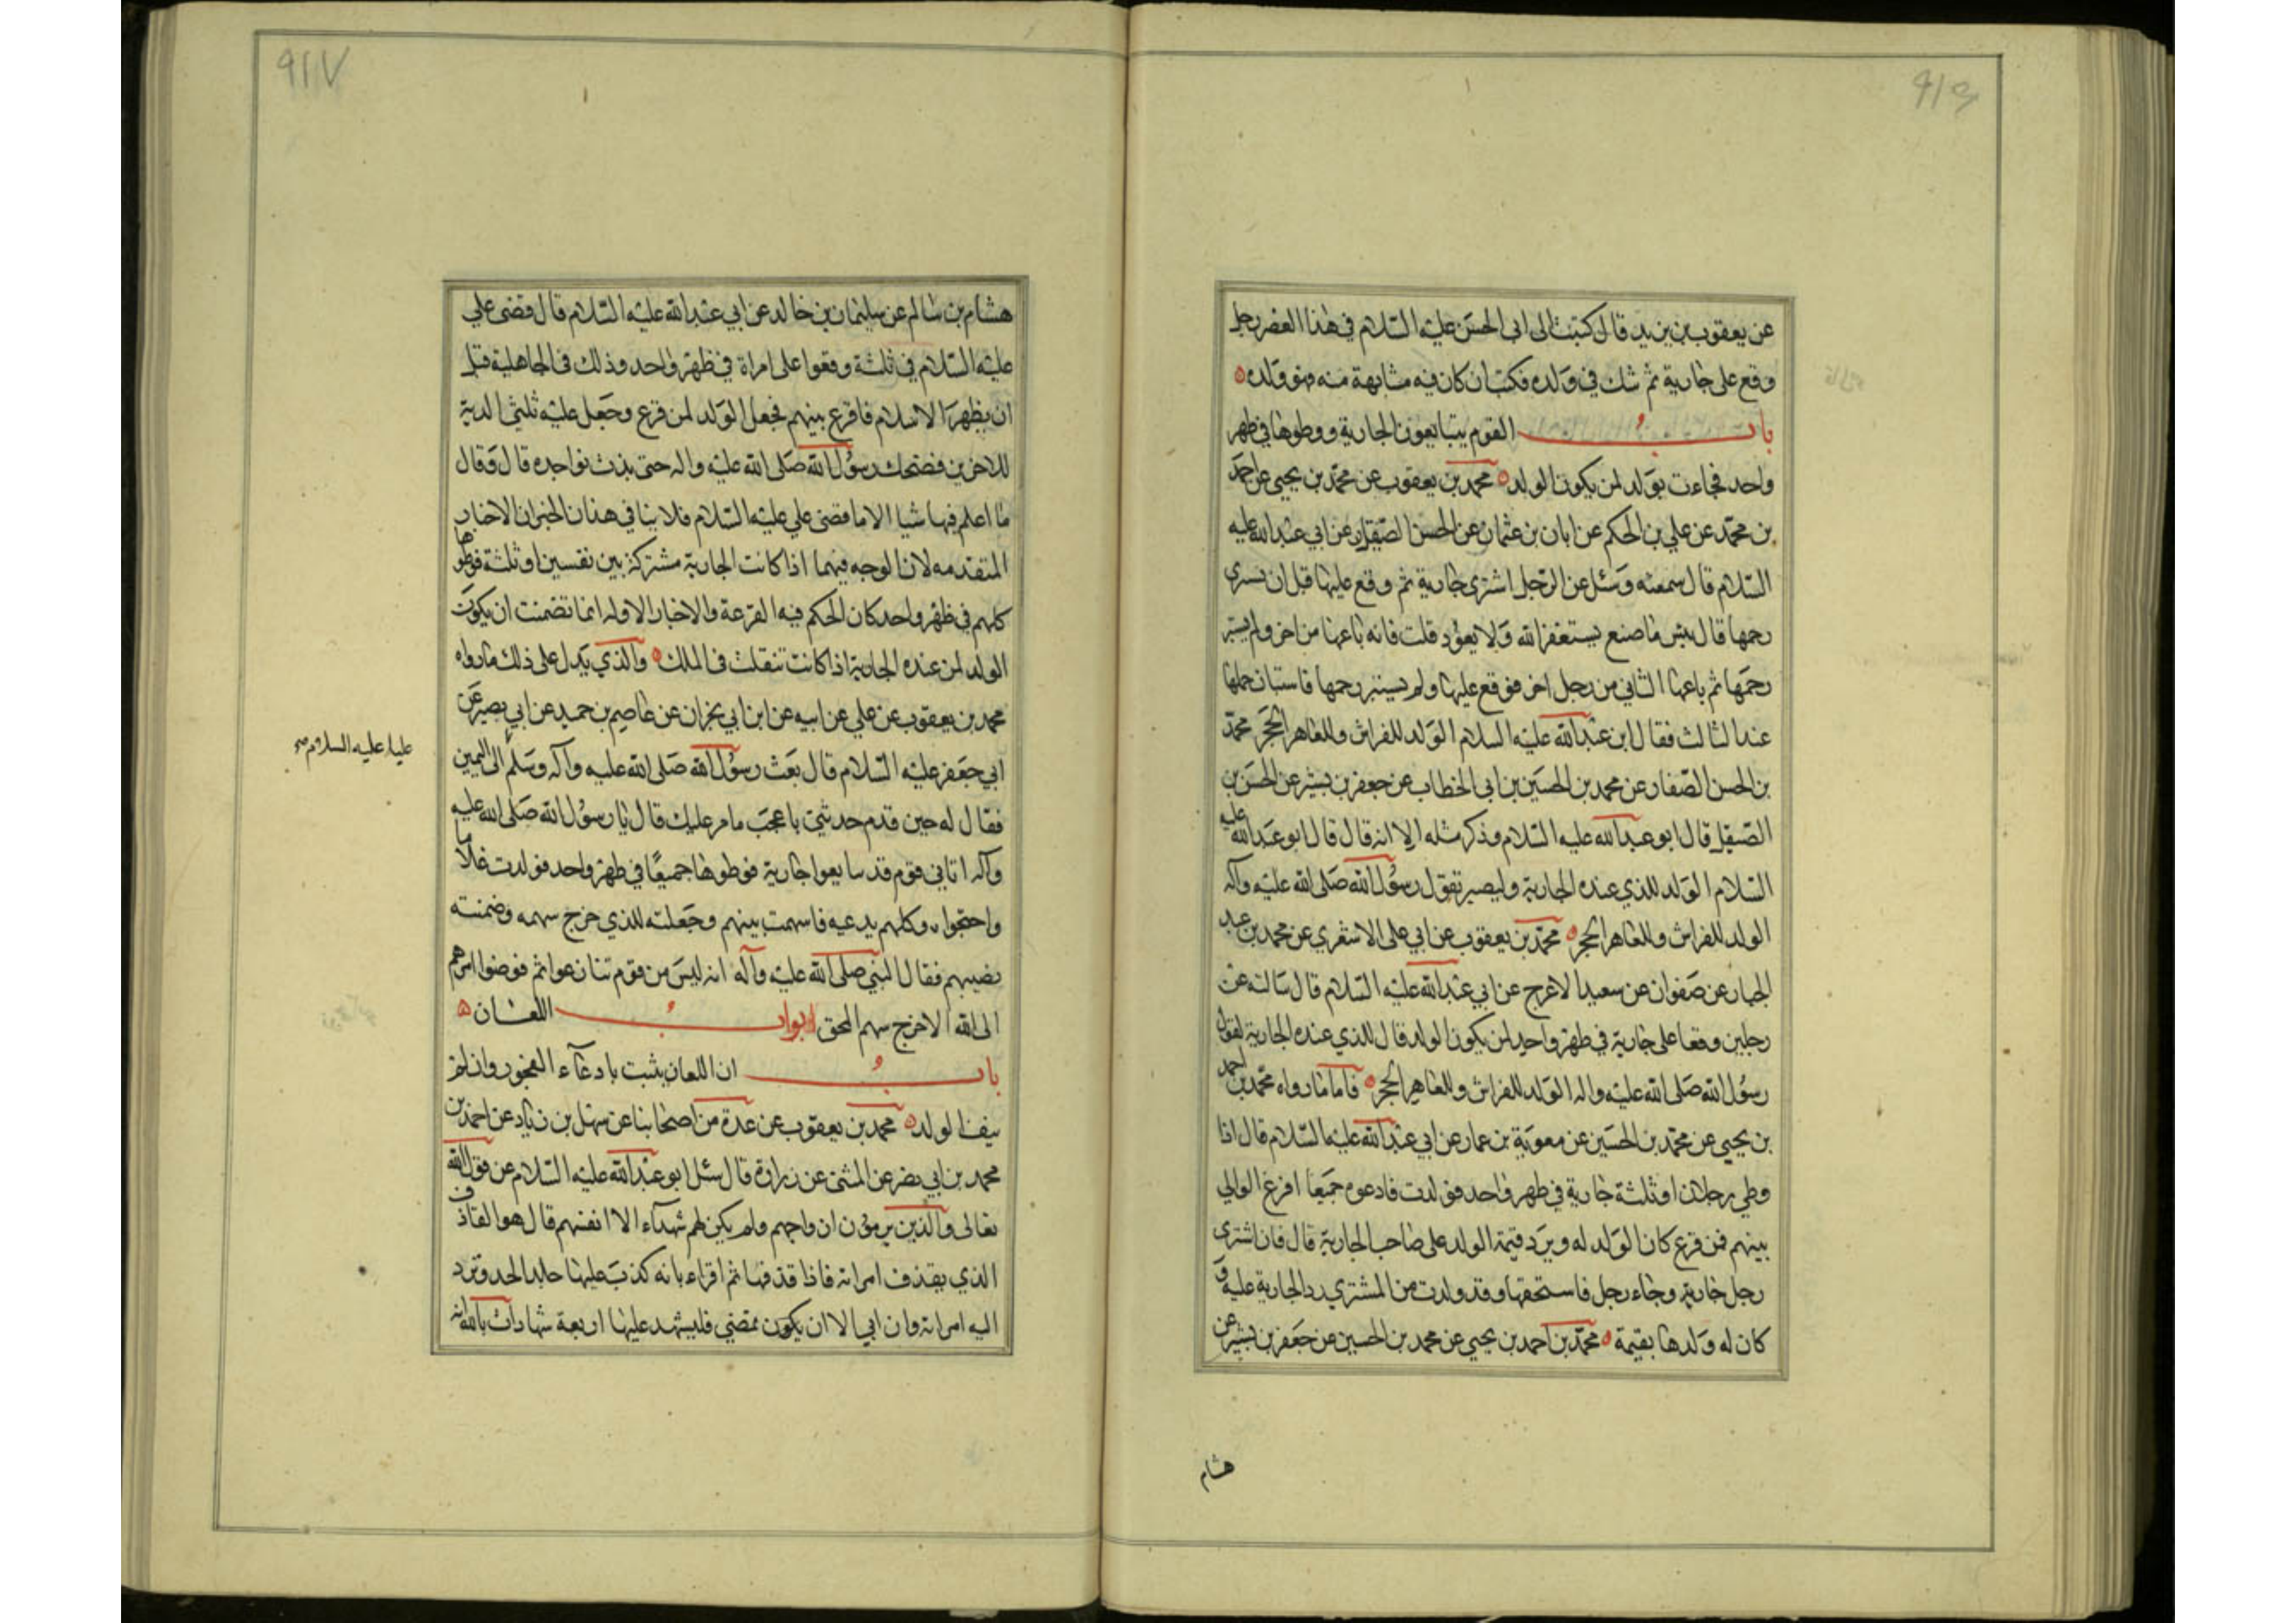 عن يعقوب بن يزيد قال كتبت الى ابى الحسن عليه السلام في هذا العصر رجل
وقع على جارية ثم شك في ولده فكتب ان كان فيه مشابهة منه فهو ولده
باب القوم يتبايعون الجارية ووطوها في طهر
واحد فجاءت بولد لمن يكون الولد محمد بن يعقوب عن محمد بن يحيى عن احمد
بن محمد عن علي بن الحكم عن ابان بن عثمان عن الحسن الصيقل عن ابي عبد الله عليه
السلام قال سمعته وسئل عن الرجل اشترى جارية ثم وقع عليها قبل ان تسرى
رحمها قال بئس ما صنع يستغفر الله ولا يعود قلت فانه باعها من اخر ولم يستبر
رحمها ثم باعها الثاني من رجل اخر فوقع عليها ولم يستبر رحمها فاستبان حملها
عند الثالث فقال ابن عبد الله عليه السلام الولد للفراش وللعاهر الحجر محمد
بن الحسن الصفار عن محمد بن الحسين بن ابي الخطاب عن جعفر بن بشير عن الحسن بن
الصيقل قال ابو عبد الله عليه السلام وذكر مثله الا انه قال قال ابو عبد الله عليه
السلام الولد للذي عنده الجارية وليصبر تقول رسول الله صلى الله عليه وآله
الولد للفراش وللعاهر الحجر محمد بن يعقوب عن ابي على الاشعري عن محمد بن عبد
الجبار عن صفوان عن سعيد الاعرج عن ابي عبد الله عليه السلام قال سالته عن
رجلين وقعا على جارية في طهر واحد لمن يكون الولد قال للذي عنده الجارية لقول
رسول الله صلى الله عليه واله الولد للفراش وللعاهر الحجر فاما ما رواه محمد بن احمد
بن يحيى عن محمد بن الحسين عن معوية بن عمار عن ابي عبد الله عليه السلام قال اذا
وطي رجلان او ثلثة جارية في طهر واحد فولدت فادعوه جميعا اقرع الوالي
بينهم فمن قرع كان الولد له ويرد قيمة الولد على صاحب الجارية قال فان اشترى
رجل جارية وجاء رجل فاستحقها وقد ولدت من المشتري رد الجارية عليه و
كان له ولدها بقيمة محمد بن احمد بن يحيى عن محمد بن الحسين عن جعفر بن بشير عن
هشام
هشام بن سالم عن سليمان بن خالد عن ابي عبد الله عليه السلام قال قضى علي
عليه السلام في ثلثة وقعوا على امراة في طهر واحد وذلك في الجاهلية قبل
ان يظهر الاسلام فاقرع بينهم فجعل الولد لمن قرع وجعل عليه ثلثي الدية
للاخرين فضحك رسول الله صلى الله عليه واله حتى بدت نواجده قال وقال
ما اعلم فيها شيا الا ما قضى علي عليه السلام فلا ينافي هذان الخبران الاخبار
المتقدمه لان الوجه فيهما اذا كانت الجارية مشتركة بين نفسين او ثلثة فوطوها
كلهم في طهر واحد كان الحكم فيه القرعة والاخبار الاوله انما تضمنت ان يكون
الولد لمن عنده الجارية اذا كانت تنقلت في الملك والذي يدل على ذلك ما رواه
محمد بن يعقوب عن علي عن ابيه عن ابن ابي نجران عن عاصم بن حميد عن ابي بصير عن
ابي جعفر عليه السلام قال بعث رسول الله صلى الله عليه وآله وسلم الى اليمين
عليا عليه السلام صح
فقال له حين قدم حدثني باعجب ما مر عليك قال يا رسول الله صلى الله عليه
وآله اتاني قوم قد تبايعوا جارية فوطوها جميعا في طهر واحد فولدت غلاما
واحتجوا وكلهم يدعيه فاسهمت بينهم وجعلته للذي خرج سهمه وضمنته
نصيبهم فقال النبي صلى الله عليه وآله انه ليس من قوم تنازعوا ثم فوضوا امرهم
الى الله الا خرج سهم المحق ابواب اللعان
باب ان اللعان يثبت بادعاء الفجور وان لم
ينف الولد محمد بن يعقوب عن عدة من اصحابنا عن سهل بن زياد عن احمد بن
محمد بن ابي نصر عن المثنى عن زرارة قال سئل ابو عبد الله عليه السلام عن قول الله
تعالى والذين يرمون ازواجهم ولم يكن لهم شهداء الا انفسهم قال هو القاذف
الذي يقذف امراته فاذا قذفها ثم اقر بانه كذب عليها جلد الحد وترد
اليه امراته وان ابى الا ان يكون يمضي فليشهد عليها اربعة شهادات بالله انه